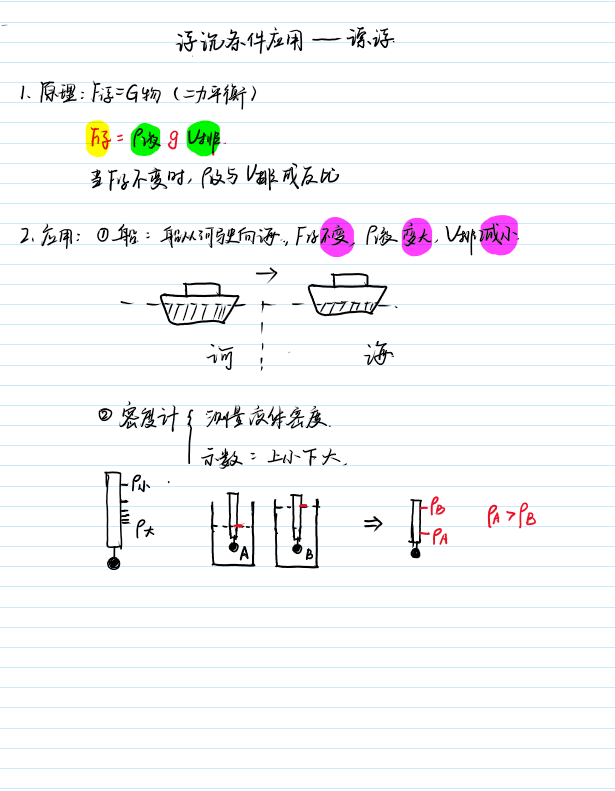 浮沉条件应用 — 漂浮
1、原理：F浮=G物（二力平衡）
F浮 = ρ液 g V排
当F浮不变时，ρ液与V排成反比
2、应用：①船：船从河驶向海，F浮不变，ρ液变大，V排减小
→
河 海
②密度计 { 测量液体密度.
示数：上小下大.
ρ小
ρ大
A B ⇒ ρB ρA ρA>ρB